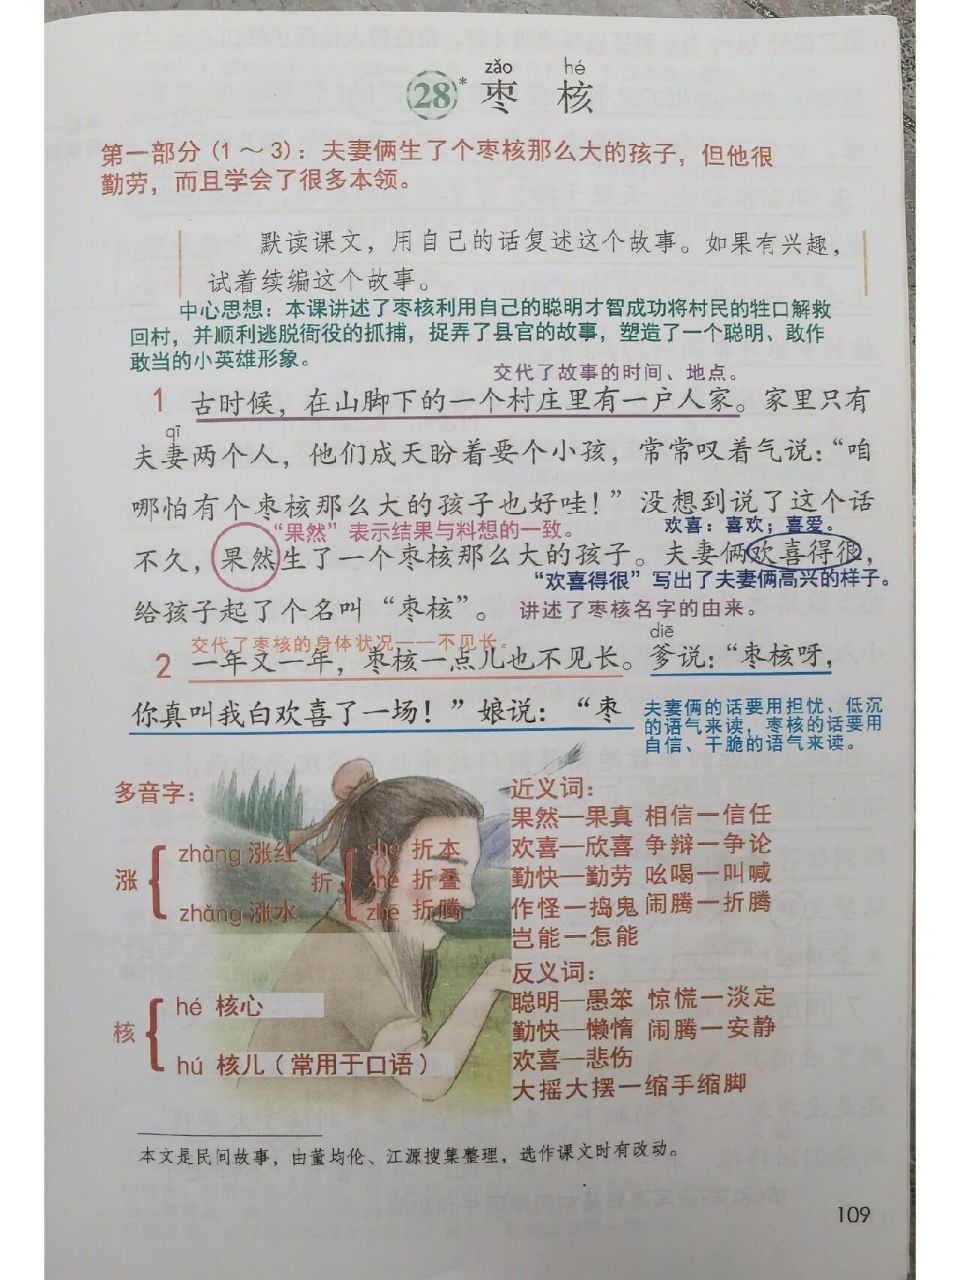 zǎo hé
28* 枣 核
第一部分（1～3）：夫妻俩生了个枣核那么大的孩子，但他很
勤劳，而且学会了很多本领。
默读课文，用自己的话复述这个故事。如果有兴趣，
试着续编这个故事。
中心思想：本课讲述了枣核利用自己的聪明才智成功将村民的牲口解救
回村，并顺利逃脱衙役的抓捕，捉弄了县官的故事，塑造了一个聪明、敢作
敢当的小英雄形象。
交代了故事的时间、地点。
1 古时候，在山脚下的一个村庄里有一户人家。家里只有
qī
夫妻两个人，他们成天盼着要个小孩，常常叹着气说：“咱
哪怕有个枣核那么大的孩子也好哇！”没想到说了这个话
“果然”表示结果与料想的一致。 欢喜：喜欢；喜爱。
不久，果然生了一个枣核那么大的孩子。夫妻俩欢喜得很，
“欢喜得很”写出了夫妻俩高兴的样子。
给孩子起了个名叫“枣核”。 讲述了枣核名字的由来。
交代了枣核的身体状况——不见长。 diē
2 一年又一年，枣核一点儿也不见长。爹说：“枣核呀，
你真叫我白欢喜了一场！”娘说：“枣
夫妻俩的话要用担忧、低沉
的语气来读，枣核的话要用
自信、干脆的语气来读。
多音字：
涨
zhàng 涨红
zhǎng 涨水
折
shé 折本
zhé 折叠
zhē 折腾
核
hé 核心
hú 核儿（常用于口语）
近义词：
果然—果真 相信—信任
欢喜—欣喜 争辩—争论
勤快—勤劳 吆喝—叫喊
作怪—捣鬼 闹腾—折腾
岂能—怎能
反义词：
聪明—愚笨 惊慌—淡定
勤快—懒惰 闹腾—安静
欢喜—悲伤
大摇大摆—缩手缩脚
本文是民间故事，由董均伦、江源搜集整理，选作课文时有改动。
109